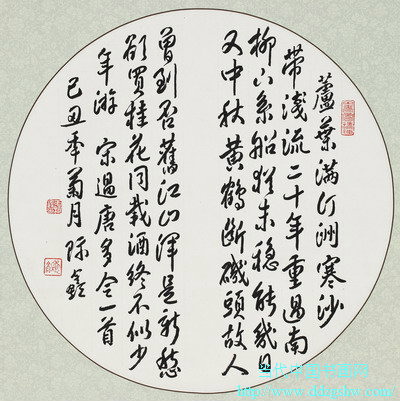 蘆葉滿汀洲寒沙
帶淺流二十年重過南
柳下系船猶未穩能幾日
又中秋黃鶴斷磯頭故人
曾到否舊江山渾是新愁
欲買桂花同載酒終不似少
年游 宋過唐多令一首
己丑年菊月
当代中国书画网
http://www.ddzgshw.com/